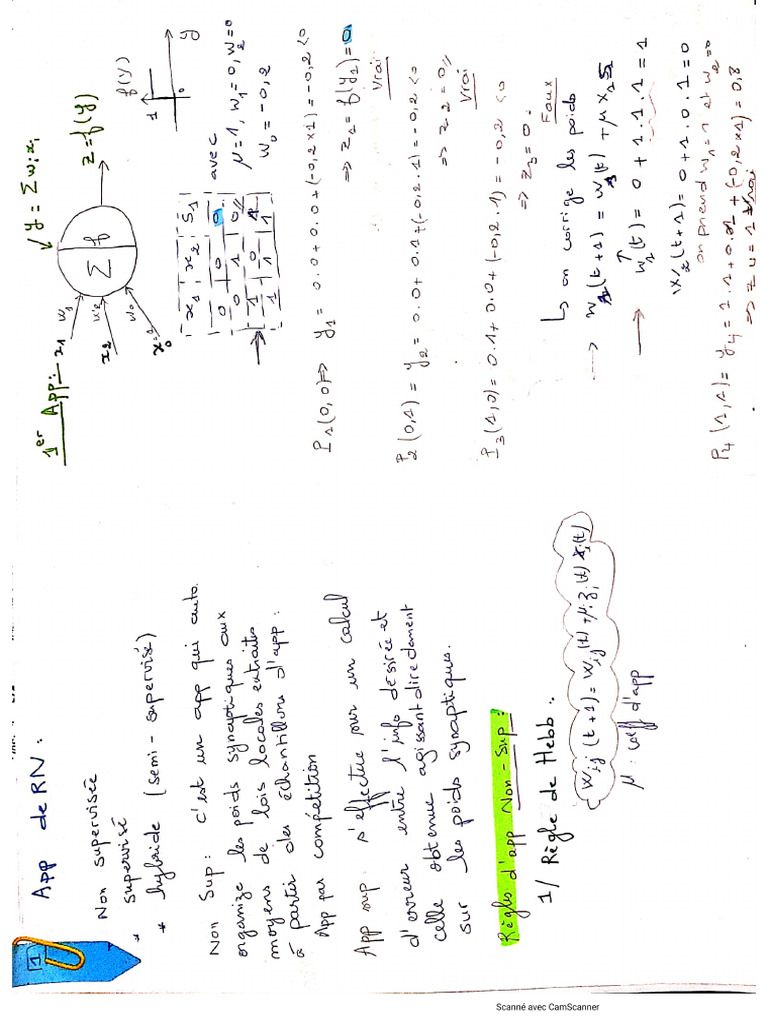 1
App de RN :
Non supervisée
* supervisé
* hybride (semi-supervisé)
Non Sup : c'est un app qui auto.
organize les poids synaptiques aux
moyens de lois locales extraits
à partir des échantillons d'app :
App par compétition
App sup : s'effectue sur un calcul
d'erreur entre l'info désirée et
celle obtenue agissant directement
sur les poids synaptiques.
Règles d'app Non-Sup :
1/ Règle de Hebb :
Wij (t+1) = Wij (t) + μ.zi (t) xj (t)
μ : coeff d'app
1er App :
y = Σ wi xi
x1 w1
x2 w2
x0 w0
Σ f
z = f(y)
f(y)
1
0
y
x1 x2 S1
0 0 0
0 1 0
1 0 1
1 1 1
avec
μ = 1, w1 = 0, w2 = 0
w0 = -0,2
P1 (0,0) => y1 = 0.0 + 0.0 + (-0,2 x 1) = -0,2 < 0
=> z1 = f(y1) = 0
Vrai
P2 (0,1) = y2 = 0.0 + 0.1 + (-0,2.1) = -0,2 < 0
=> z2 = 0
Vrai
P3 (1,0) = 0.1 + 0.0 + (-0,2.1) = -0,2 < 0
=> z3 = 0
Faux
↳ on corrige les poids
→ w1 (t+1) = w1 (t) + μ x1 S
→ w1 (t) = 0 + 1.1.1 = 1
w2 (t+1) = 0 + 1.0.1 = 0
on prend w1 = 1 et w2 = 0
P4 (1,1) = y4 = 1.1 + 0.1 + (-0,2 x 1) = 0,8
=> z4 = 1 Vrai
Scanné avec CamScanner